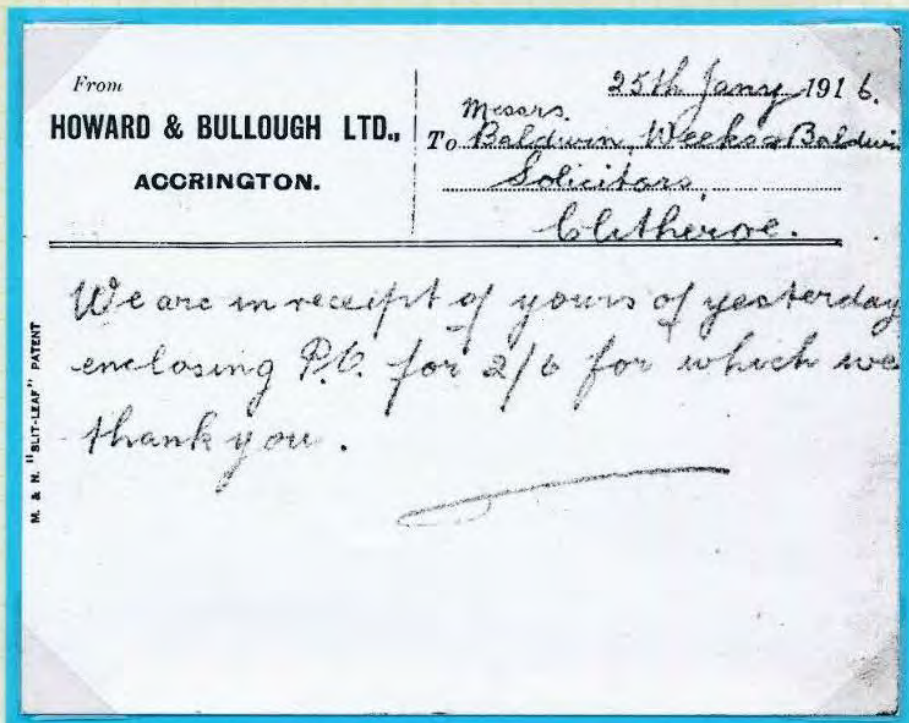 From
HOWARD & BULLOUGH LTD.,
ACCRINGTON.
25th Jany 1916.
Messrs.
To Baldwin, Weeks & Baldwin
Solicitors,
Clitheroe.
We are in receipt of yours of yesterday
enclosing P.O. for 2/6 for which we
thank you.
M. & N. "SLIT-LEAF" PATENT